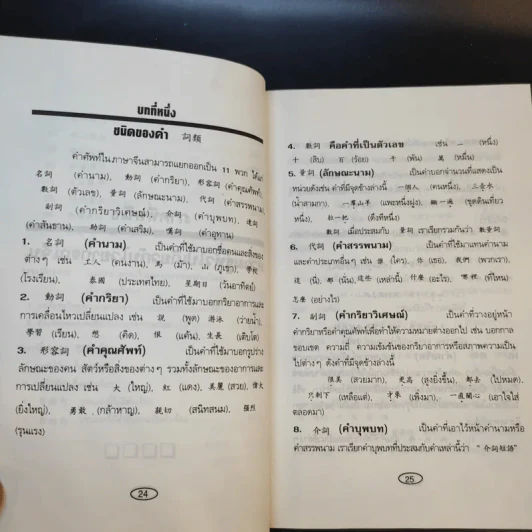 บทที่หนึ่ง
ชนิดของคำ 詞類
คำศัพท์ในภาษาจีนสามารถแยกออกเป็น 11 พวก ได้แก่
名詞 (คำนาม), 動詞 (คำกริยา), 形容詞 (คำคุณศัพท์)
數詞 (ตัวเลข), 量詞 (ลักษณะนาม), 代詞 (คำสรรพนาม)
副詞 (คำกริยาวิเศษณ์), 介詞 (คำบุพบท), 連詞
(คำสันธาน), 助詞 (คำเสริม), 嘆詞 (คำอุทาน)
1. 名詞 (คำนาม) เป็นคำที่ใช้มาบอกชื่อคนและสิ่งของ
ต่างๆ เช่น 工人 (คนงาน), 馬 (ม้า), 山 (ภูเขา), 學校
(โรงเรียน), 泰國 (ประเทศไทย), 星期日 (วันอาทิตย์)
2. 動詞 (คำกริยา) เป็นคำที่ใช้มาบอกกริยาอาการและ
การเคลื่อนไหวเปลี่ยนแปลง เช่น 說 (พูด) 游泳 (ว่ายน้ำ),
學習 (เรียน), 想 (คิด), 恨 (แค้น), 生長 (เติบโต)
3. 形容詞 (คำคุณศัพท์) เป็นคำที่ใช้มาบอกรูปร่าง
ลักษณะของคน สัตว์หรือสิ่งของต่างๆ รวมทั้งลักษณะของอาการและ
การเปลี่ยนแปลง เช่น 大 (ใหญ่), 紅 (แดง), 美麗 (สวย), 偉大
(ยิ่งใหญ่), 勇敢 (กล้าหาญ), 親切 (สนิทสนม), 強烈
(รุนแรง)
24
4. 數詞 คือคำที่เป็นตัวเลข เช่น 一 (หนึ่ง)
十 (สิบ) 百 (ร้อย) 千 (พัน) 萬 (หมื่น)
5. 量詞 (ลักษณะนาม) เป็นคำบอกจำนวนที่แสดงเป็น
หน่วยดังเช่น คำที่มีจุดข้างล่างนี้ 一個人 (คนหนึ่ง), 三杯水
(น้ำสามถ้วย), 一群山羊 (แพะหนึ่งฝูง),
หนึ่ง), 拉一把 (ดึงทีหนึ่ง)
數詞 เมื่อประสมกับ 量詞 เราเรียกรวมกันว่า 數量詞
6. 代詞 (คำสรรพนาม) เป็นคำที่ใช้มาแทนคำนาม
และคำประเภทอื่นๆ เช่น 誰 (ใคร), 你 (เธอ), 我們 (พวกเรา),
這 (นี่), 那 (นั่น), 這些 (เหล่านี้), 什麼 (อะไร), 哪裡 (ที่ไหน)
怎麼 (อย่างไร)
7. 副詞 (คำกริยาวิเศษณ์) เป็นคำที่วางอยู่หน้า
คำกริยาหรือคำคุณศัพท์เพื่อทำให้ความหมายต่างออกไป เช่น บอกกาล
ขอบเขต ความถี่ ความเข้มข้นของกริยาอาการหรือสภาพความเป็น
ไปต่างๆ ดังคำที่มีจุดข้างล่างนี้
很美 (สวยมาก), 更高 (สูงยิ่งขึ้น), 都去 (ไปหมด),
只剩下 (เหลือแต่), 才來 (เพิ่งมา), 一直關心 (เอาใจใส่
ตลอดมา)
8. 介詞 (คำบุพบท) เป็นคำที่เอาไว้หน้าคำนามหรือ
คำสรรพนาม เราเรียกคำบุพบทที่ประสมกับคำเหล่านี้ว่า "介詞短語"
25